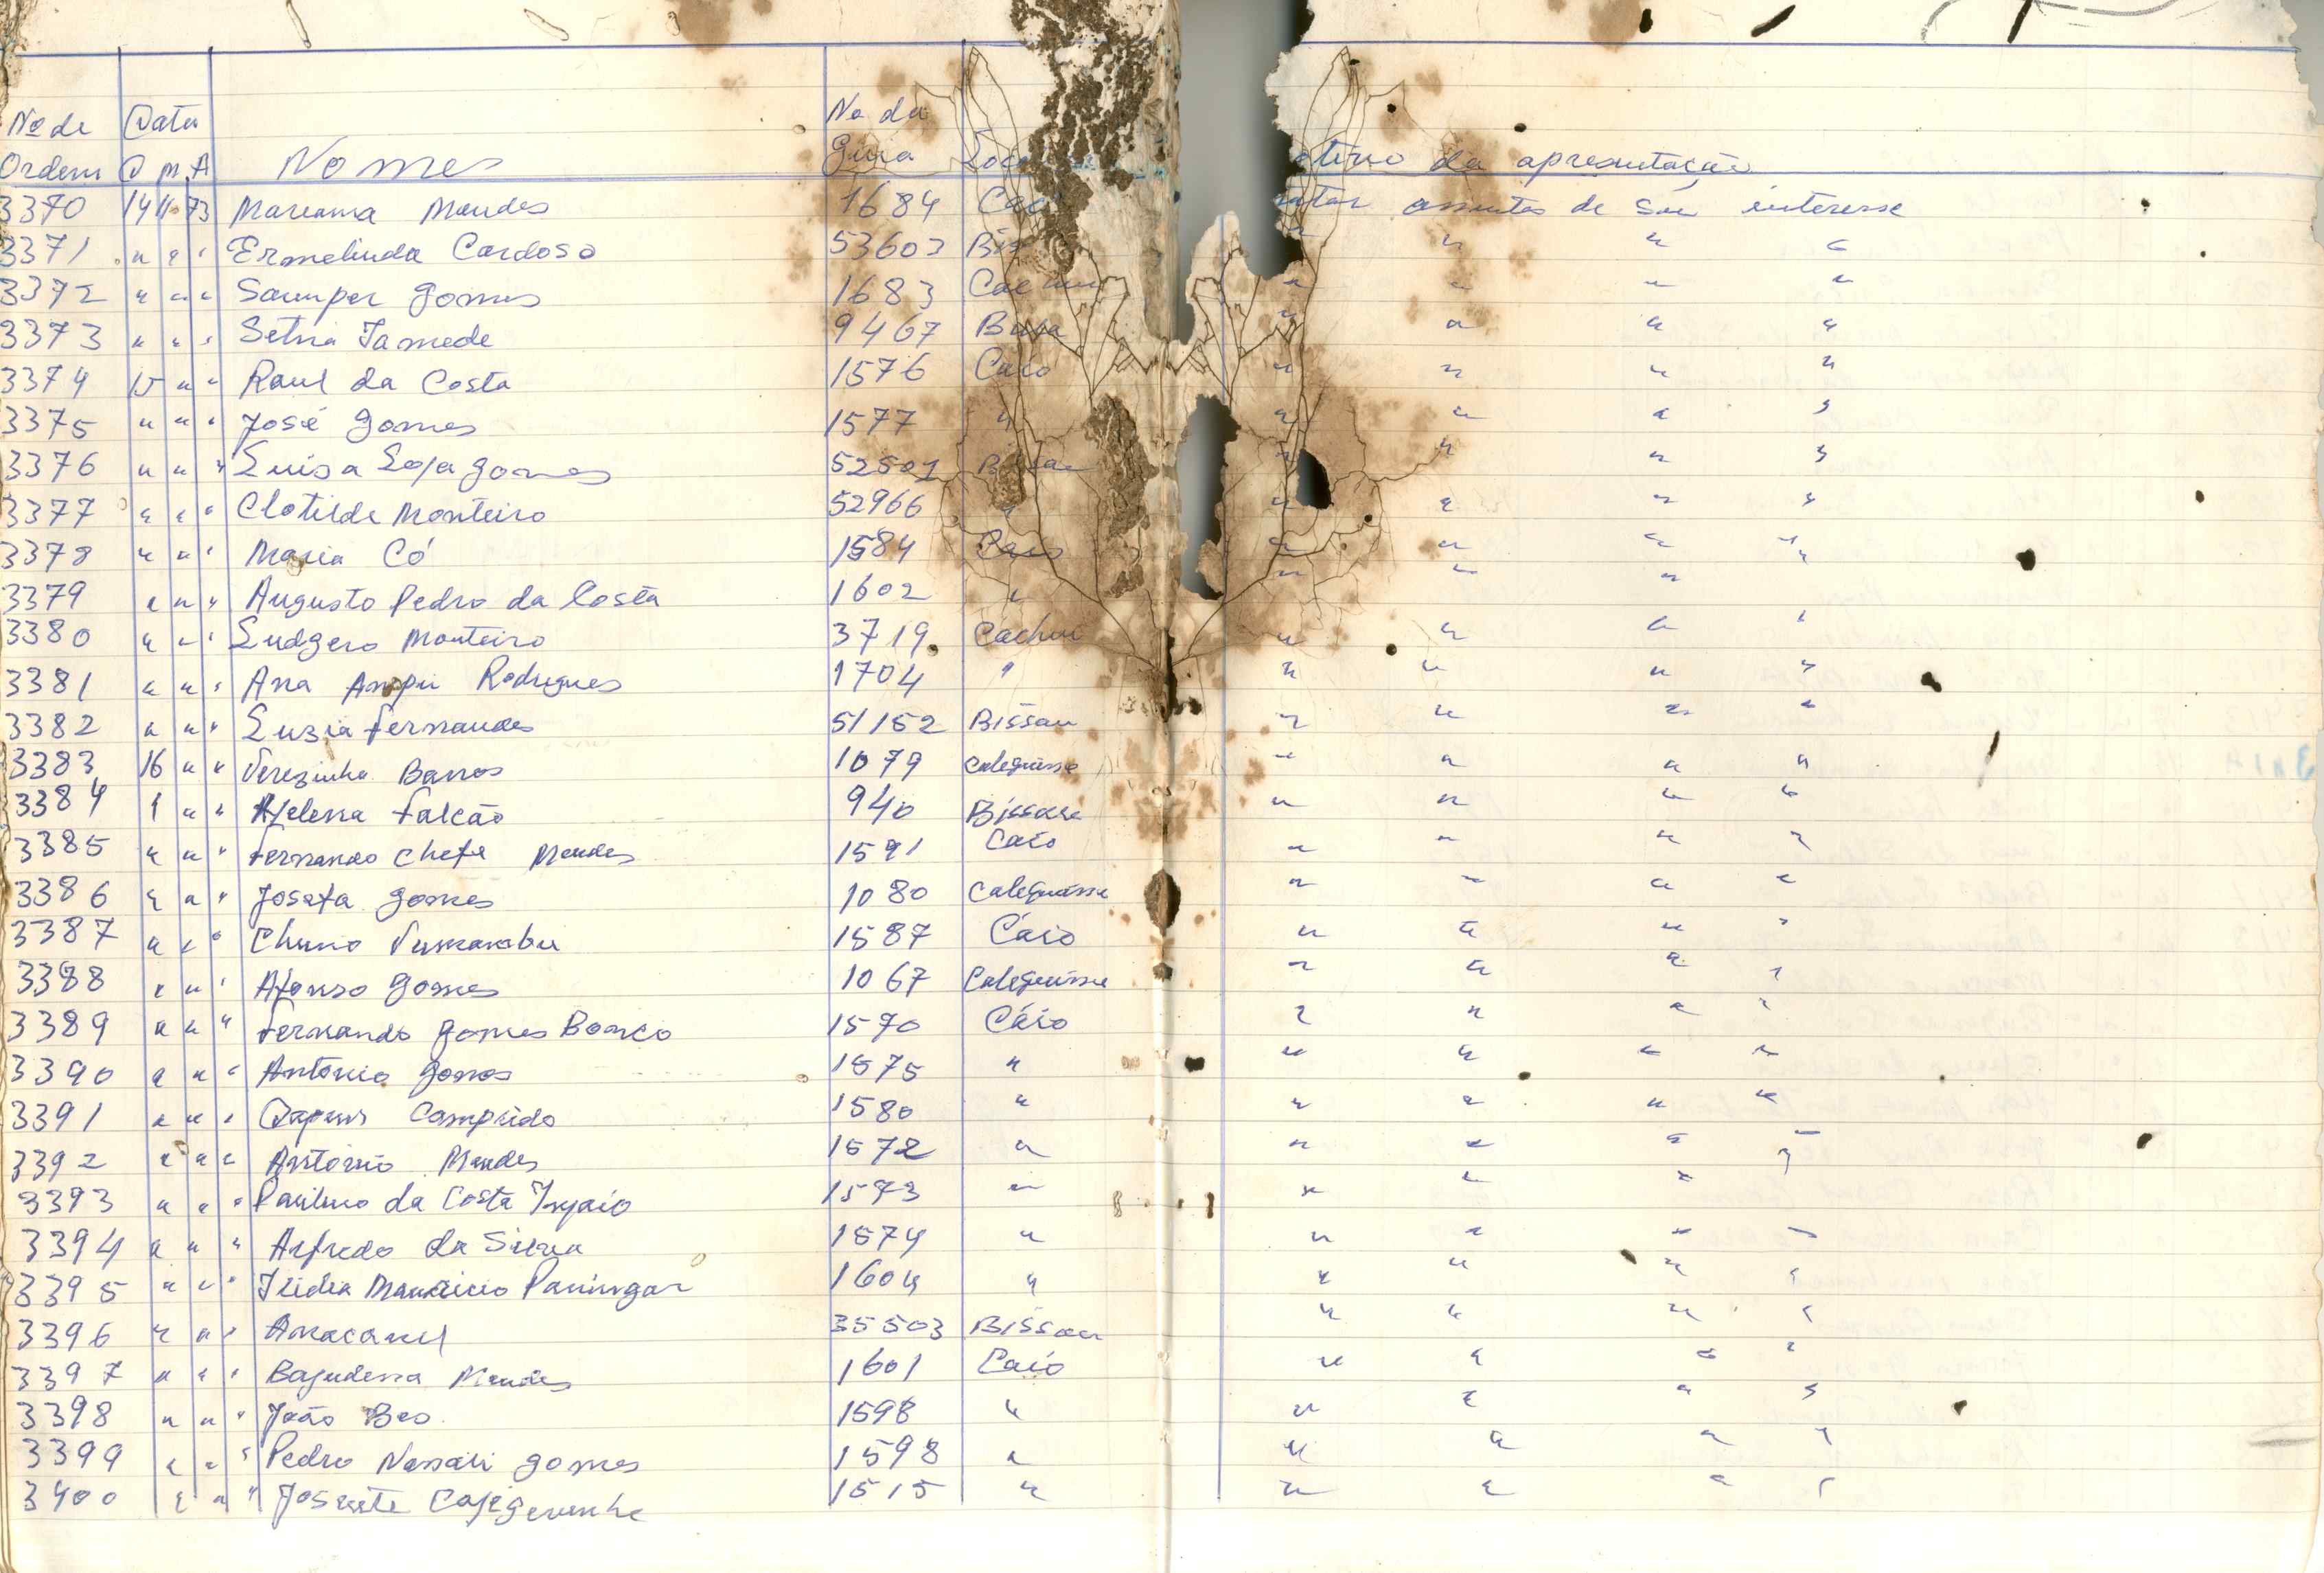 Nº de Data No da
Ordem D M A Nomes Guia otivo da apresentação
3370 14 11 73 Mariama Mendes 1684 assuntos de seu interesse
3371 " " " Ermelinda Cardoso 53603 " " " "
3372 " " " Sumper Gomes 1683 " " " "
3373 " " " 9467 " " " "
3374 15 " " Raul da Costa 1576 Caió " " " "
3375 " " " José Gomes 1577 " " " " "
3376 " " " Luisa Gomes 52501 " " " "
3377 " " " Clotilde Monteiro 52966 " " " " "
3378 " " " Maria Có 1584 Caió " " " "
3379 " " " Augusto Pedro da Costa 1602 " " " " "
3380 " " " Ludgero Monteiro 3719 Cacheu " " " "
3381 " " " Ana Ampu Rodrigues 1704 " " " " "
3382 " " " Luzia Fernandes 51152 Bissau " " " "
3383 16 " " Terezinha Barros 1079 Calequisse " " " "
3384 " " " Helena Falcão 940 " " " "
3385 " " " Fernando Chefe Mendes 1591 Caió " " " "
3386 " " " Josefa Gomes 1080 Calequisse " " " "
3387 " " " Chuno 1587 Caió " " " "
3388 " " " Afonso Gomes 1067 Calequisse " " " "
3389 " " " Fernando Gomes 1590 Caió " " " "
3390 " " " António Gomes 1575 " " " " "
3391 " " " Comprido 1580 " " " " "
3392 " " " António Mendes 1572 " " " " "
3393 " " " Paulino da Costa 1573 " " " "
3394 " " " Alfredo da Silva 1574 " " " " "
3395 " " " Ilidia Mauricio 1604 " " " " "
3396 " " " 35503 Bissau " " " "
3397 " " " Bajudessa Mendes 1601 Caió " " " "
3398 " " " João 1598 " " " " "
3399 " " " Pedro Gomes 1598 " " " " "
3400 " " " 1515 " " " " "